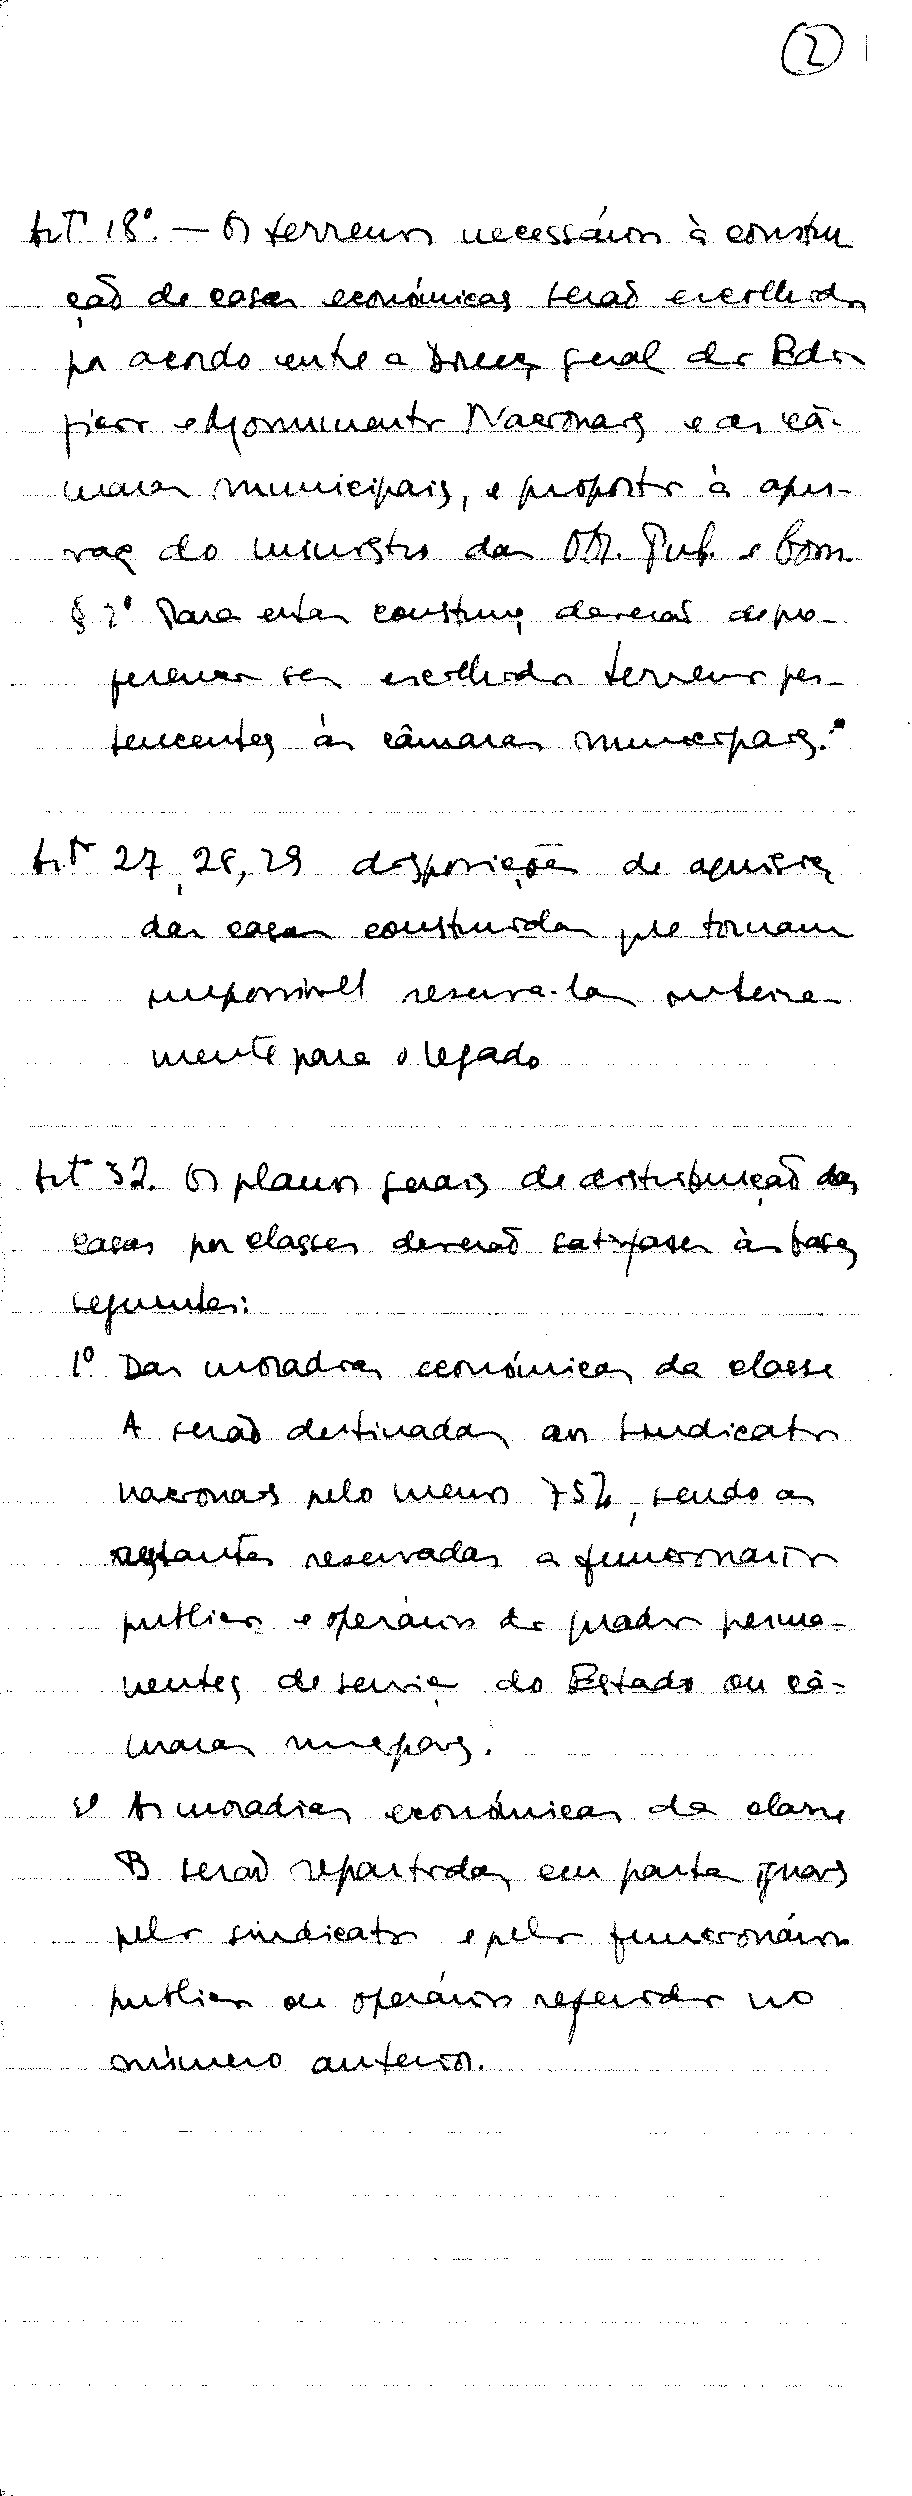 2
Artº 18º. — Os terrenos necessários à constru
ção de casas económicas serão escolhidos
por acordo entre a Direcç. geral dos Edi-
ficios e Monumentos Nacionais e as câ-
maras municipais, e propostos à apro-
vaç do ministro das Ob. Pub. e Com.
§ 2º Para estas construç deverão de pre-
ferencia ser escolhidos terrenos per-
tencentes às câmaras municipais."
Artº 27, 28, 29 disposições de aquisiç
das casas construidas que tornam
impossivel reserva-las inteira-
mente para o legado
Artº 32. Os planos gerais de distribuição das
casas por classes deverão satisfazer às bases
seguintes:
1º Das moradias económicas da classe
A serão destinadas aos sindicatos
nacionais pelo menos 75%, sendo as
restantes reservadas a funcionarios
publicos e operários dos quadros perma-
nentes de serviç do Estado ou câ-
maras municipais.
2º As moradias económicas da classe
B serão repartidas em partes iguais
pelos sindicatos e pelos funcionários
publicos ou operários referidos no
número anterior.